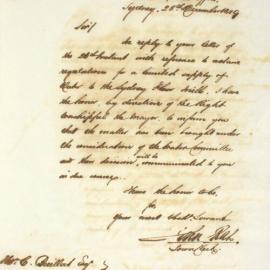 Sydney, 28th December 1849
Sir
In reply to your letter of
the 28th Instant with reference to
regulations for a limited supply of
Water to the Sydney Flour Mill, I have
the honor, by direction of the Right
Worshipful the Mayor, to inform you
that the matter has been brought under
the consideration of the Water Committee
and their decision will be communicated to you
in due course.
I have the honor to be,
Sir
Your most obedt. Servant
John Rae
Town Clerk
Mr. C. Esqr.